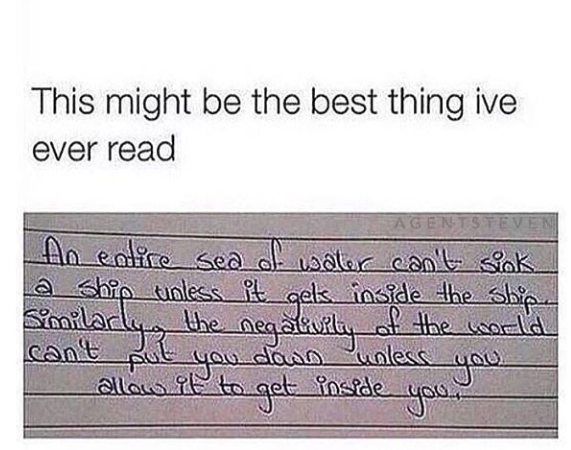 This might be the best thing ive
ever read
AGENTSTEVEN
An entire sea of water can't sink
a ship unless it gets inside the ship.
Similarly, the negativity of the world
can't put you down unless you
allow it to get inside you.